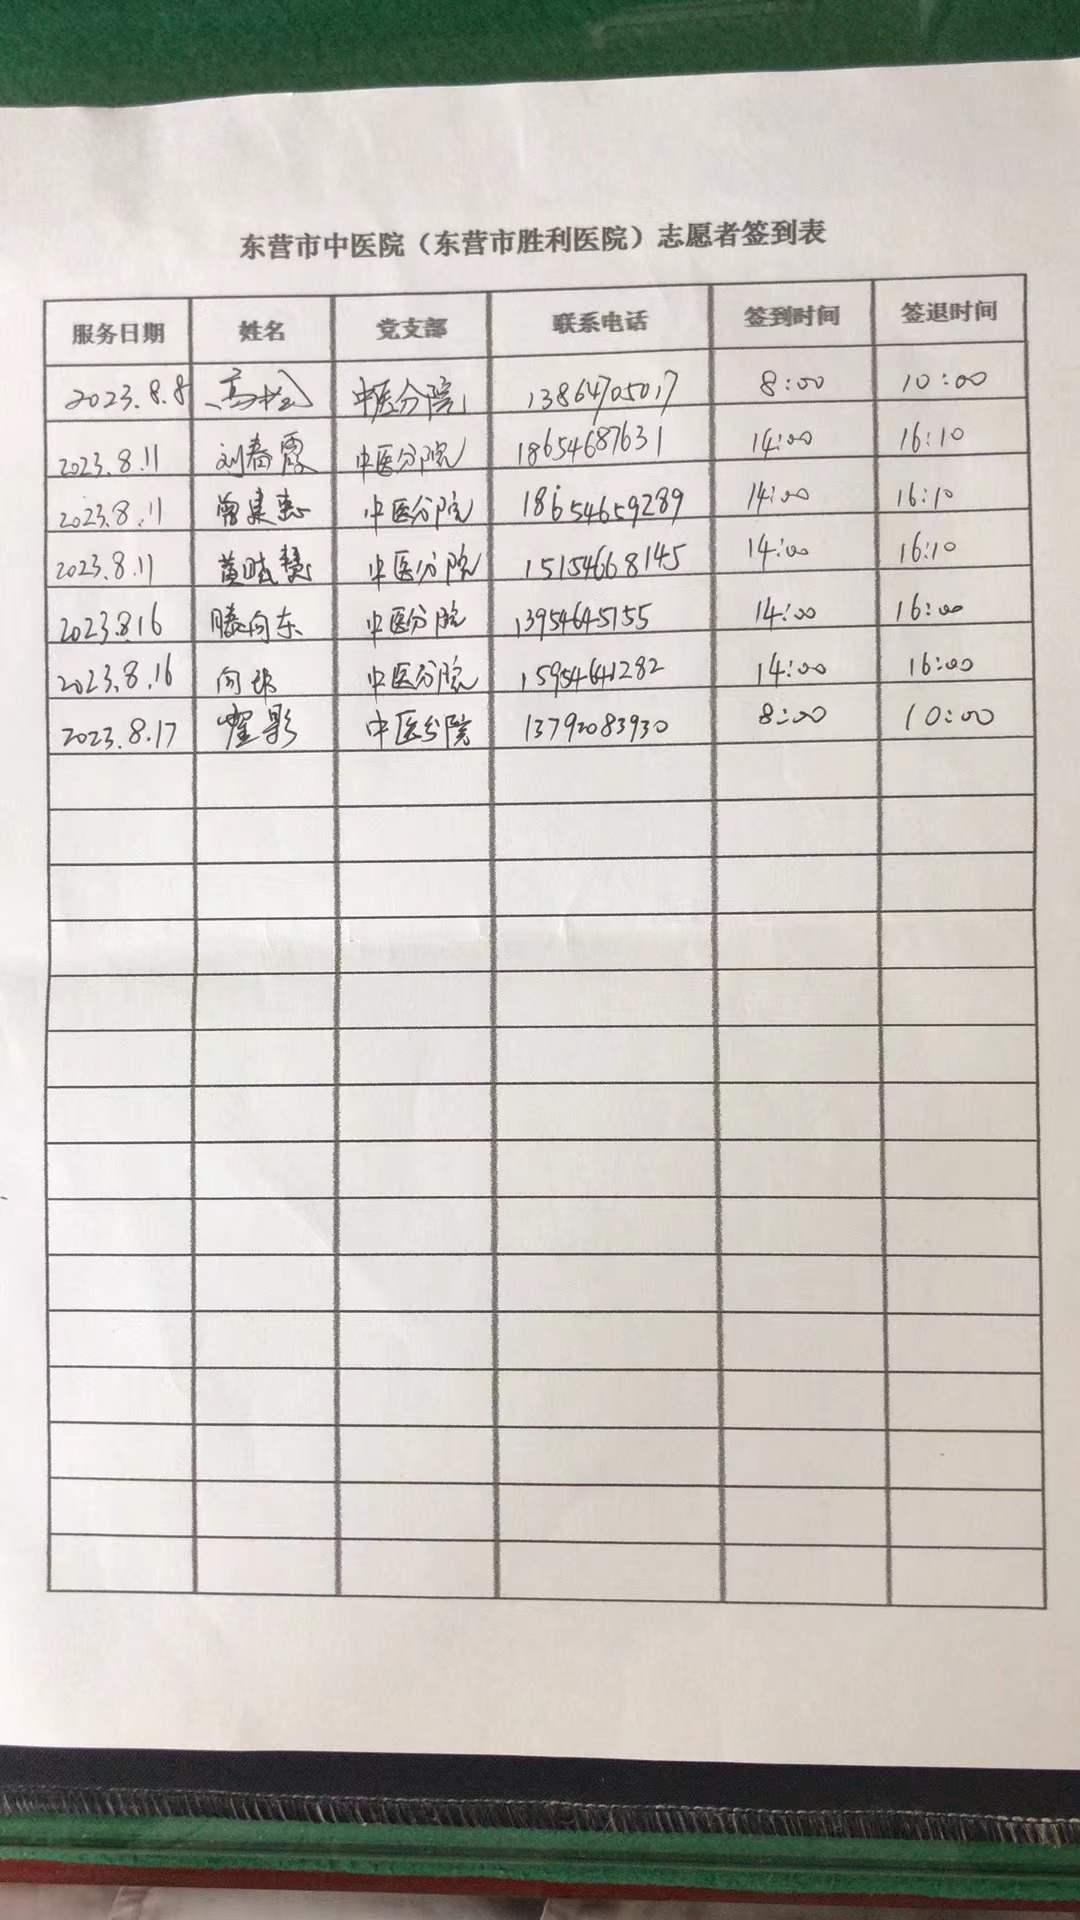 东营市中医院（东营市胜利医院）志愿者签到表
服务日期 姓名 党支部 联系电话 签到时间 签退时间
2023.8.8 高 中医分院 13864705017 8:00 10:00
2023.8.11 刘春霞 中医分院 18654687631 14:00 16:10
2023.8.11 曾建惠 中医分院 18654659289 14:00 16:10
2023.8.11 黄晓慧 中医分院 15154668145 14:00 16:10
2023.8.16 滕向东 中医分院 13954645755 14:00 16:00
2023.8.16 向 中医分院 15954641282 14:00 16:00
2023.8.17 翟影 中医分院 13792083930 8:00 10:00